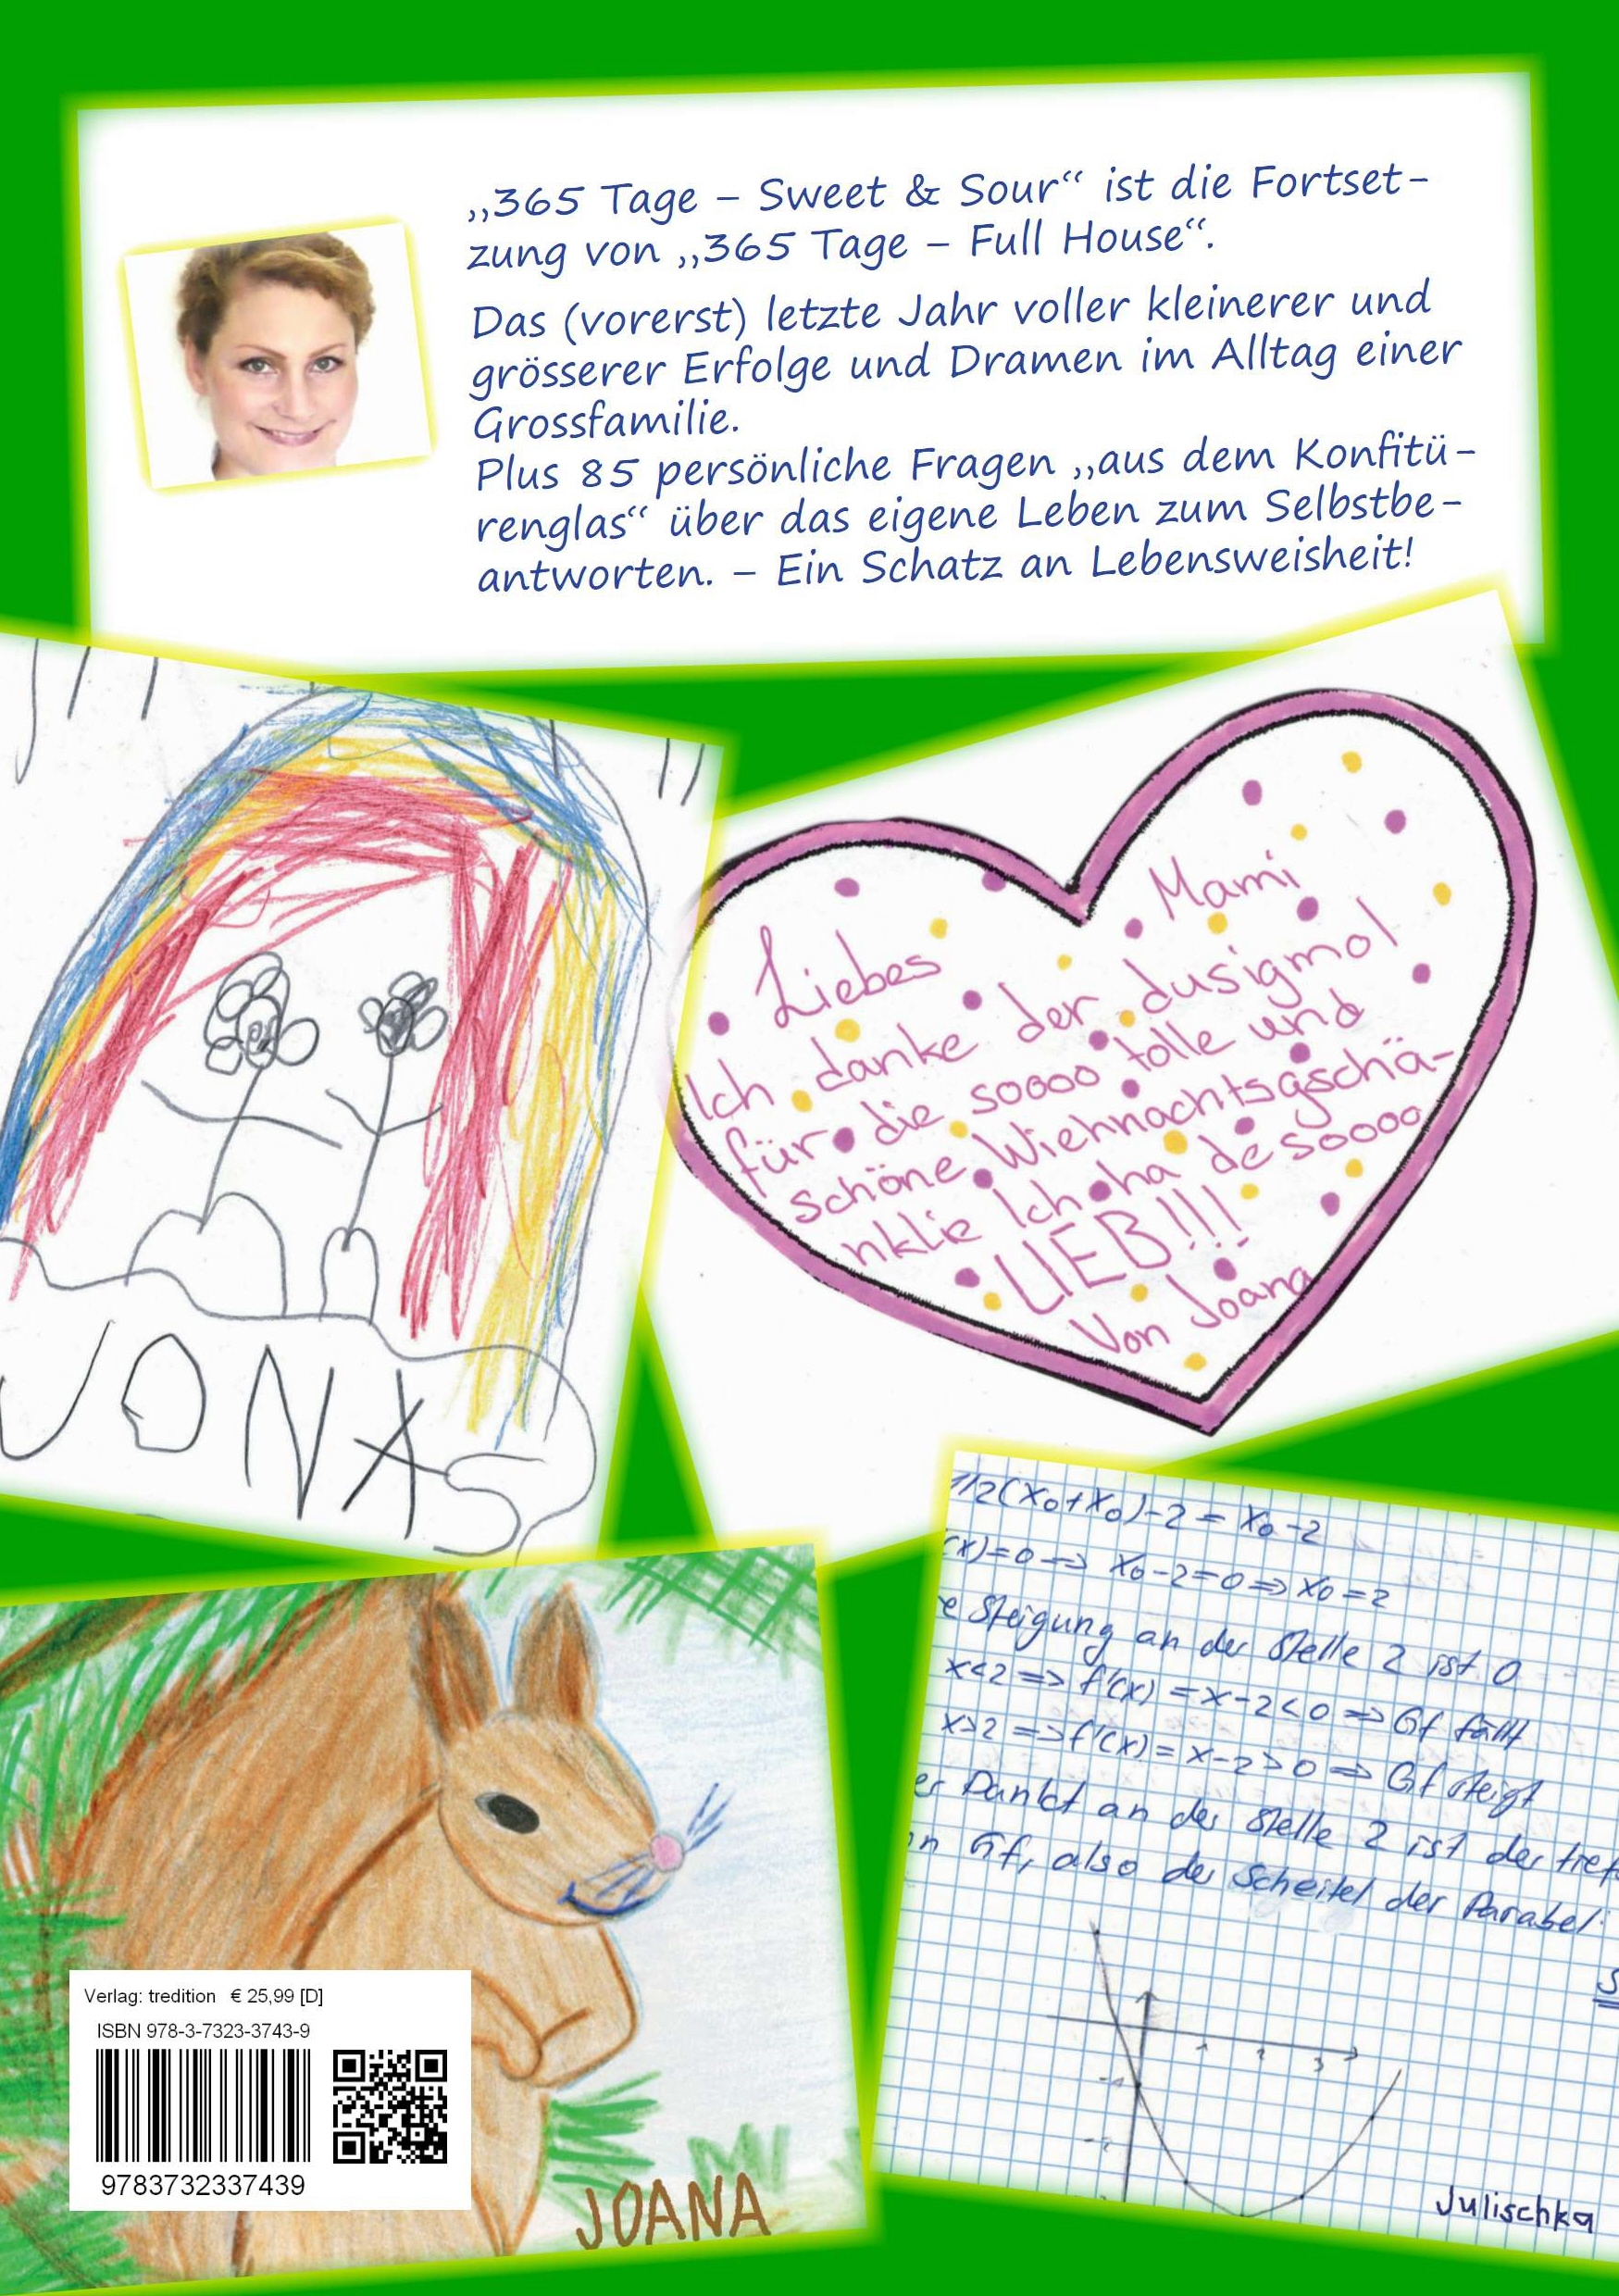 „365 Tage – Sweet & Sour“ ist die Fortset-
zung von „365 Tage – Full House“.
Das (vorerst) letzte Jahr voller kleinerer und
grösserer Erfolge und Dramen im Alltag einer
Grossfamilie.
Plus 85 persönliche Fragen „aus dem Konfitü-
renglas“ über das eigene Leben zum Selbstbe-
antworten. – Ein Schatz an Lebensweisheit!
JONAS
Liebes Mami
Ich danke der dusigmol
für die soooo tolle und
schöne Wiehnachtsgschä-
nklie Ich ha de soooo
LIEB!!!
Von Joana
1/2(x₀+x₀)-2 = x₀-2
(x)=0 => x₀-2=0 => x₀=2
e Steigung an der Stelle 2 ist 0
x<2 => f'(x) = x-2<0 => Gf fällt
x>2 => f'(x) = x-2>0 => Gf steigt
er Punkt an der Stelle 2 ist der tief
n Gf, also der Scheitel der Parabel:
S
1 2 3
-1
-2
Julischka
JOANA
Verlag: tredition € 25,99 [D]
ISBN 978-3-7323-3743-9
9783732337439